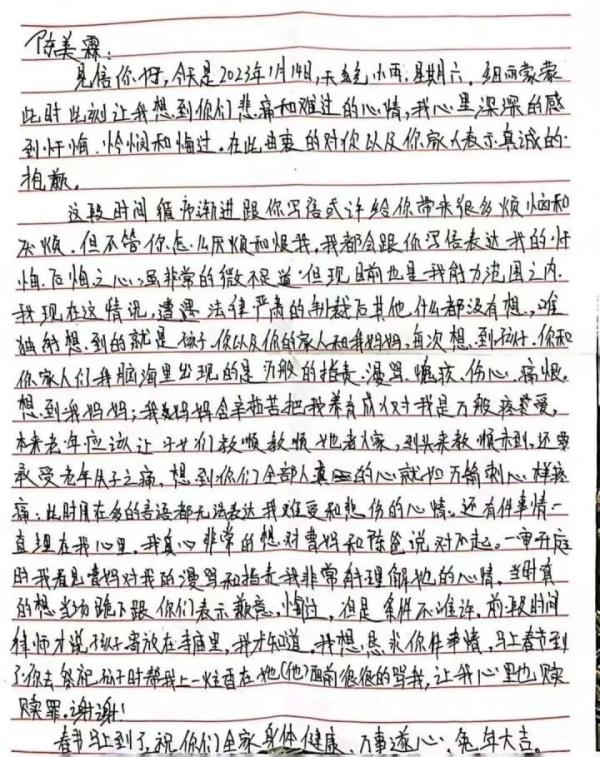 陈美霖:
见信你好,今天是2023年1月14日,天气小雨,星期六,细雨蒙蒙
此时此刻让我想到你们悲痛和难过的心情,我心里深深的感
到忏悔、怜悯和悔过,在此由衷的对你以及你家人表示真诚的
抱歉。
这段时间循序渐进跟你写信或许给你带来很多烦恼和
厌烦,但不管你怎么厌烦和恨我,我都会跟你写信表达我的忏
悔、后悔之心,虽非常的微不足道,但现目前也是我能力范围之内,
我现在这情况,遭受法律严肃的制裁后其他什么都没有想,唯
独的想到的就是孩子、你以及你的家人和我妈妈,每次想到孩子、你和
你家人们我脑海里出现的是万般的指责、漫骂、愧疚、伤心、痛恨。
想到我妈妈;我妈妈含辛茹苦把我养育成人对我是万般疼爱,
本来老年应该让子女们孝顺孝顺她老人家,到头来孝顺未到,还要
承受老年失子之痛,想到你们全部人的心就如万箭刺心一样疼
痛;此时用在多的言语都无法表达我难受和悲伤的心情。还有件事情一
直埋在我心里,我真心非常的想对曹妈和陈爸说对不起。一审开庭
时我看见曹妈对我的漫骂和指责我非常的理解她的心情,当时真
的想当场跪下跟你们表示歉意,悔过,但是条件不准许,前段时间
律师才说孩子寄放在寺庙里,我才知道,我想恳求你件事情,马上春节到
了,你去祭祀孩子时帮我上一炷香在她(他)面前很很的骂我,让我心里也赎
赎罪。谢谢!
春节马上到了,祝你们全家身体健康、万事遂心,兔年大吉。